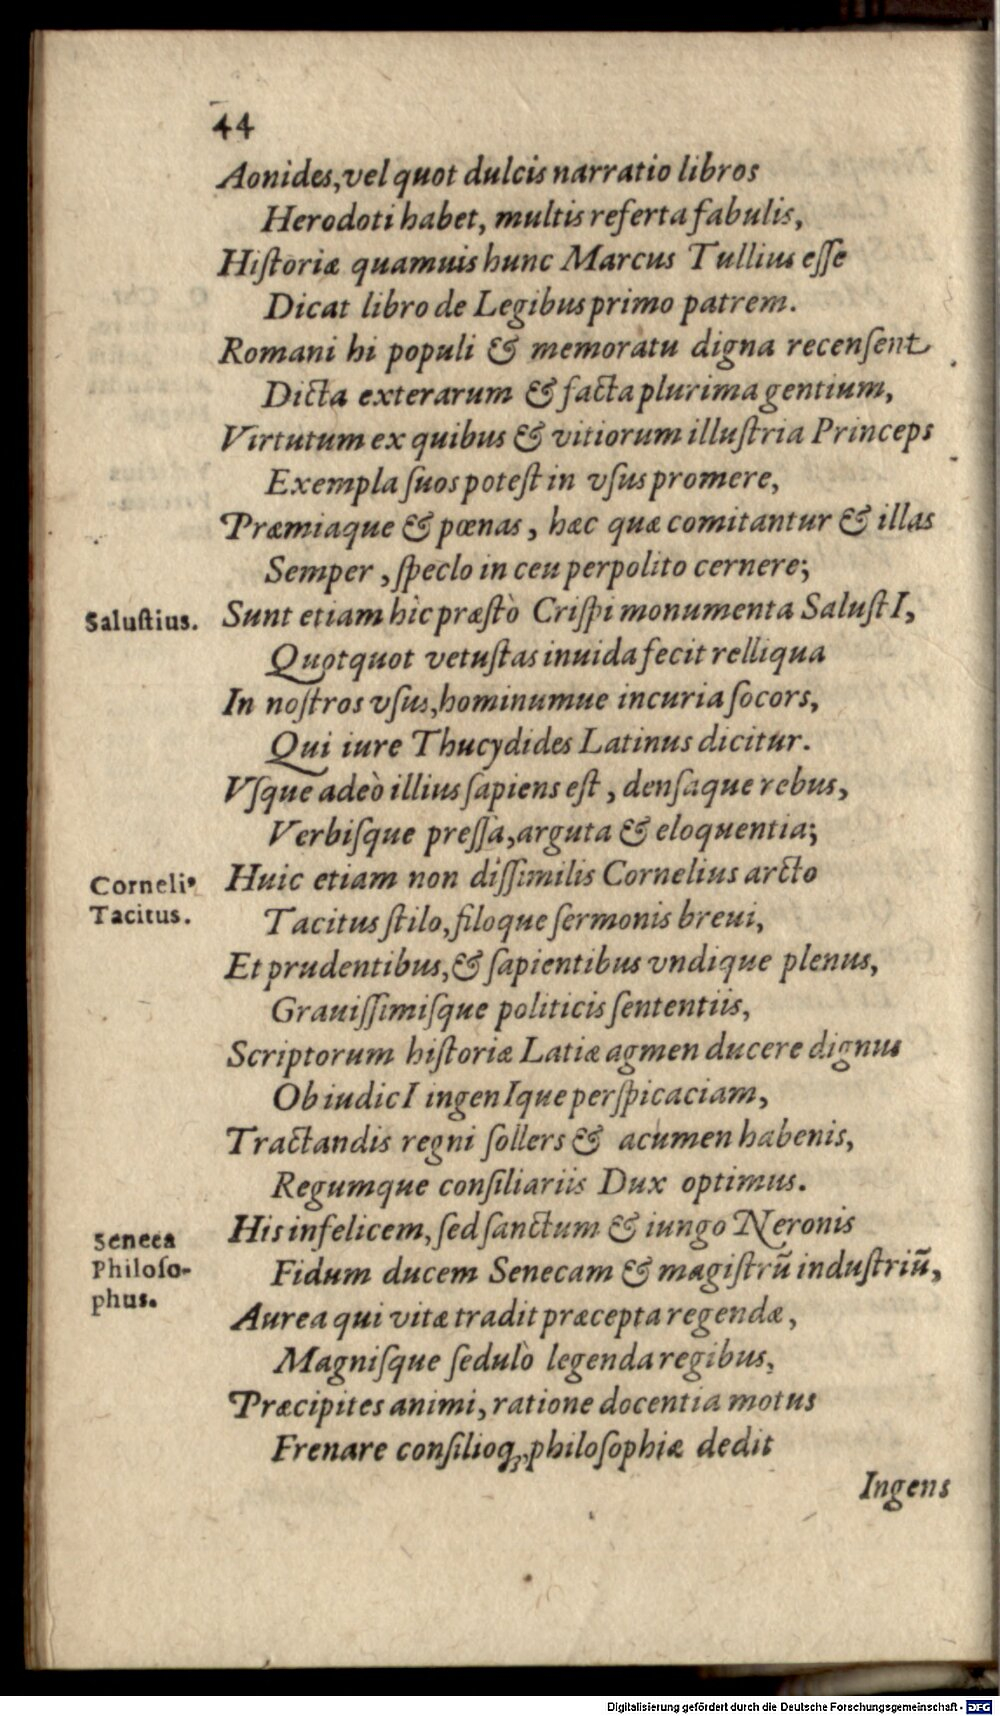 44
Aonides, vel quot dulcis narratio libros
Herodoti habet, multis referta fabulis,
Hiſtoriæ quamuis hunc Marcus Tullius eſſe
Dicat libro de Legibus primo patrem.
Romani hi populi & memoratu digna recenſent
Dicta exterarum & facta plurima gentium,
Virtutum ex quibus & vitiorum illuſtria Princeps
Exempla ſuos poteſt in vſus promere,
Præmiaque & pœnas, hæc quæ comitantur & illas
Semper, ſpeclo in ceu perpolito cernere;
Saluſtius. Sunt etiam hìc præſtò Criſpi monumenta SaluſtI,
Quotquot vetuſtas inuida fecit relliqua
In noſtros vſus, hominumue incuria ſocors,
Qui iure Thucydides Latinus dicitur.
Vſque adeò illius ſapiens eſt, denſaque rebus,
Verbiſque preſſa, arguta & eloquentia;
Corneliꝰ Huic etiam non diſſimilis Cornelius arcto
Tacitus. Tacitus ſtilo, filoque ſermonis breui,
Et prudentibus, & ſapientibus vndique plenus,
Grauiſſimiſque politicis ſententiis,
Scriptorum hiſtoriæ Latiæ agmen ducere dignus
Ob iudicI ingenIque perſpicaciam,
Tractandis regni ſollers & acumen habenis,
Regumque conſiliariis Dux optimus.
Seneca His infelicem, ſed ſanctum & iungo Neronis
Philoſo- Fidum ducem Senecam & magiſtrũ induſtriũ,
phus. Aurea qui vitæ tradit præcepta regendæ,
Magniſque ſedulò legenda regibus,
Præcipites animi, ratione docentia motus
Frenare conſilioq́;, philoſophiæ dedit
Ingens
Digitalisierung gefördert durch die Deutsche Forschungsgemeinschaft - DFG